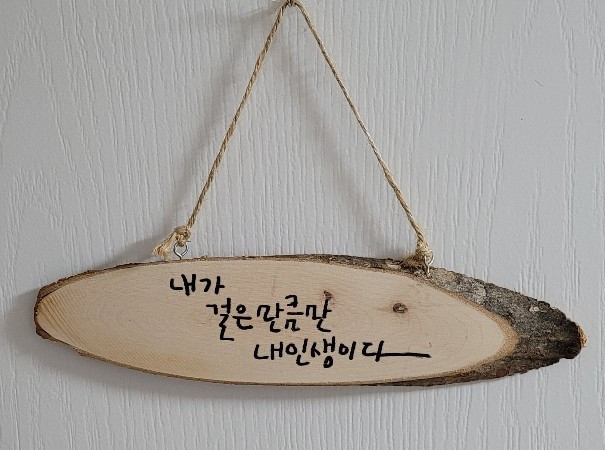 내가
걸은 만큼만
내인생이다